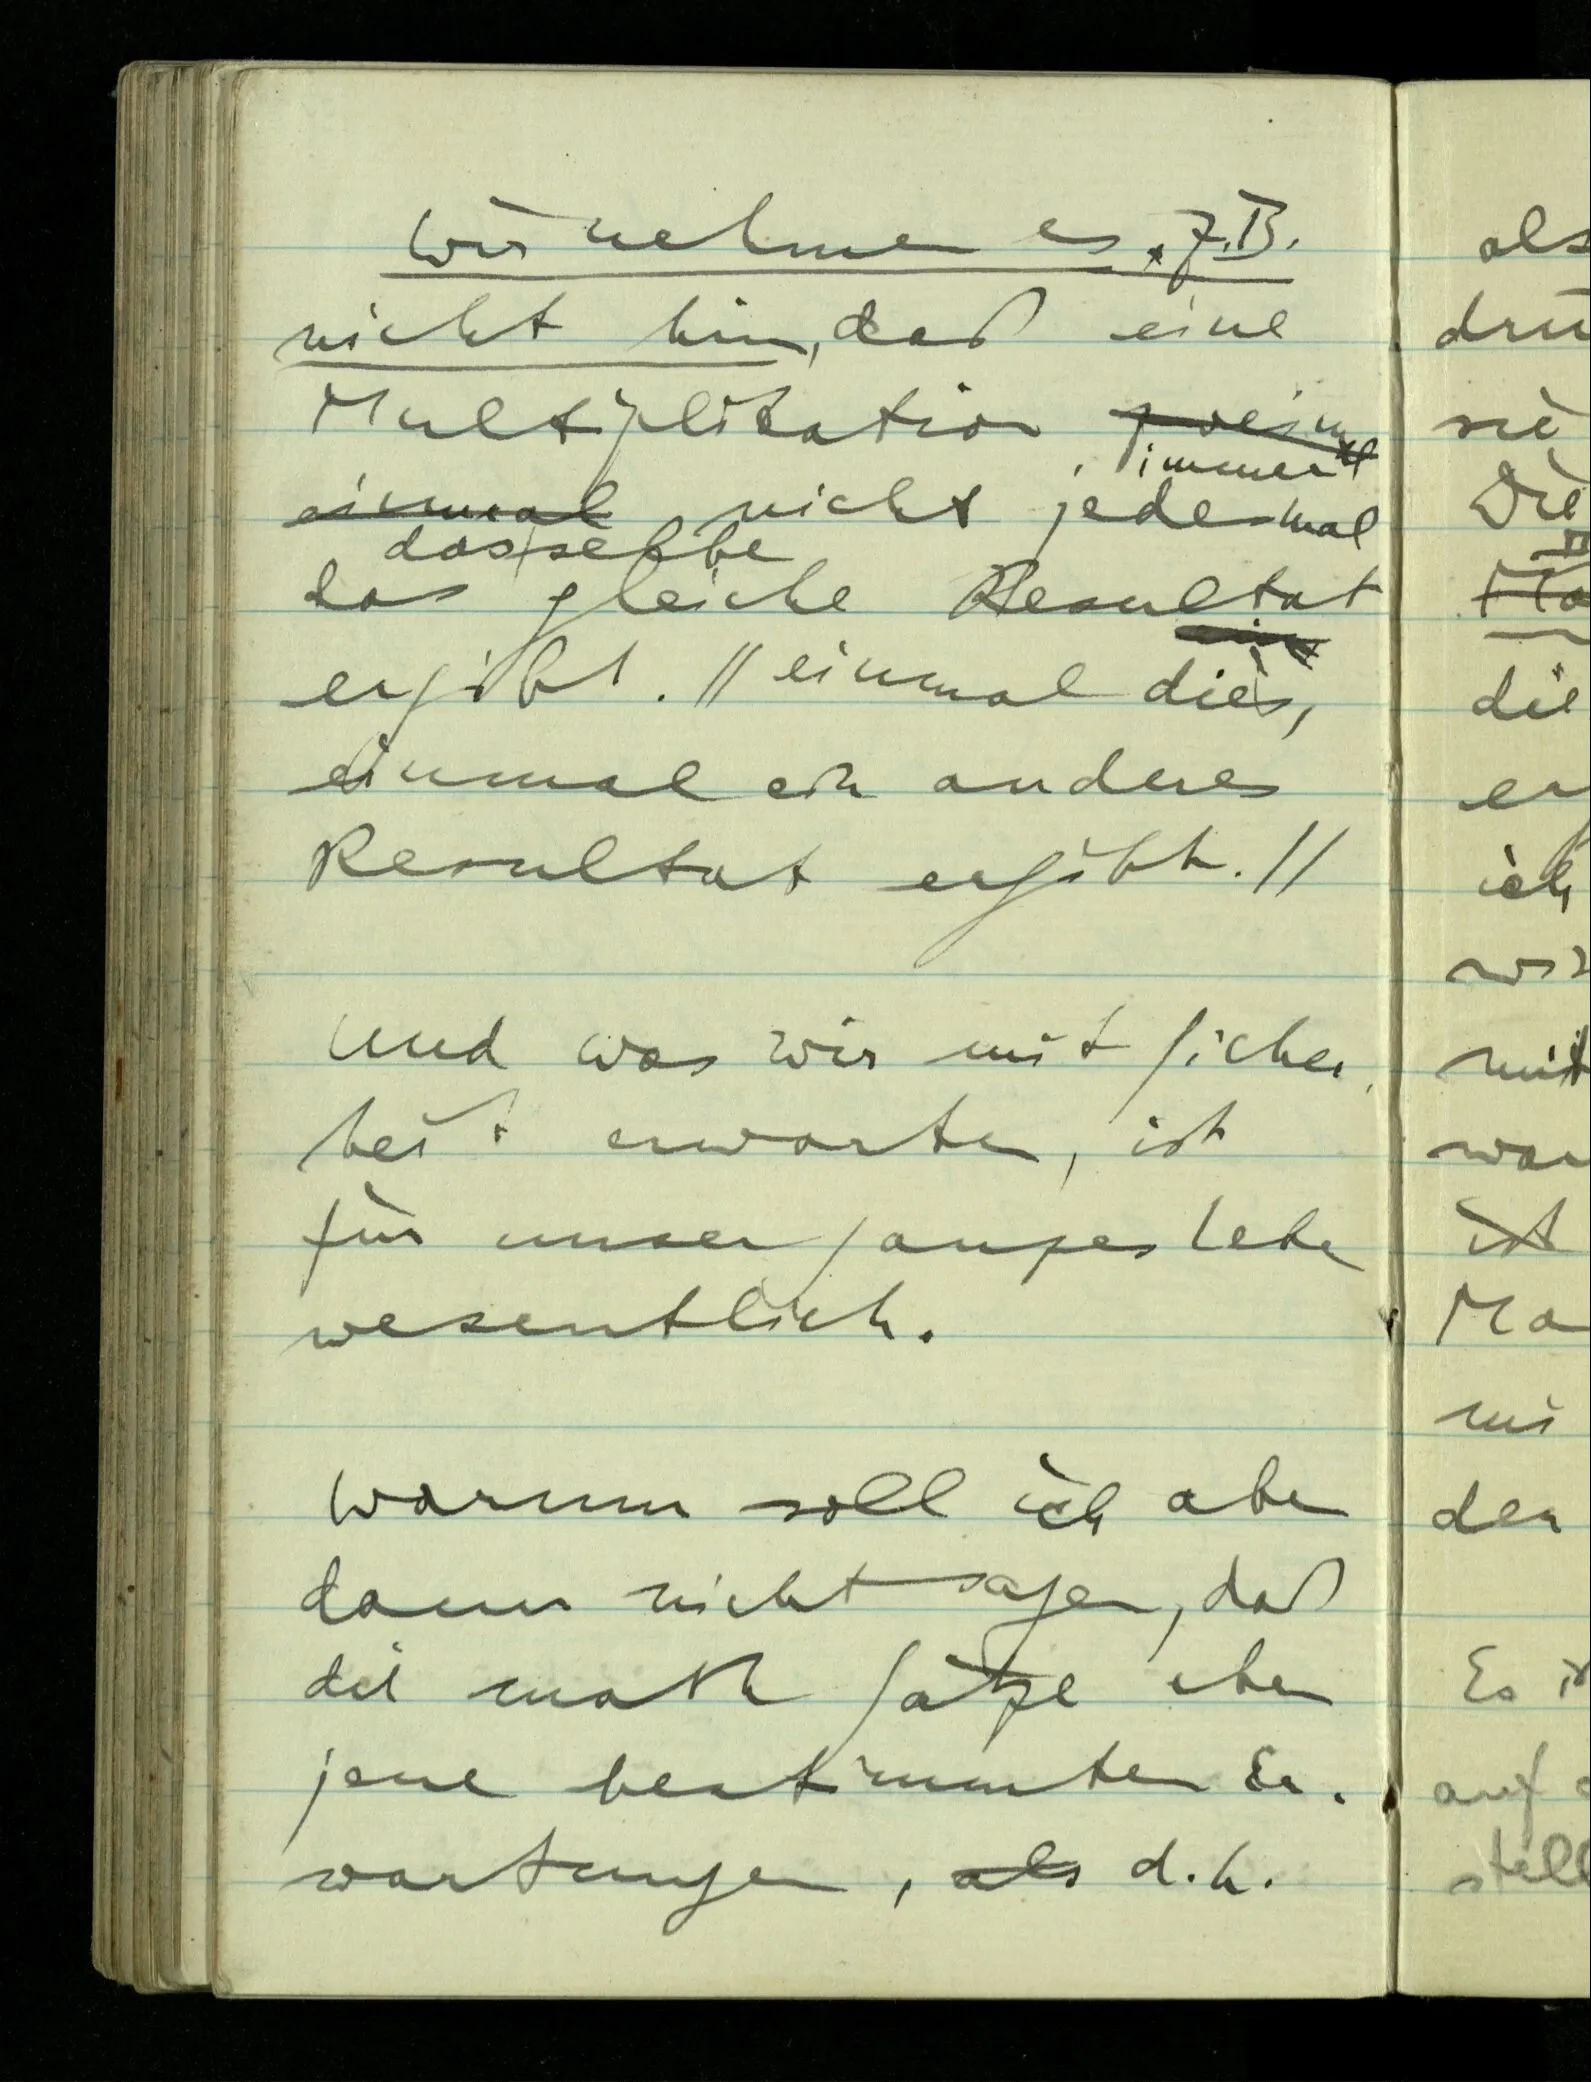 Wir nehmen es z.B.
nicht hin, daß eine
Multiplikation zweimal
immer
einmal nicht jedesmal
dasselbe
das gleiche Resultat
ein
ergibt. // einmal dies,
einmal ein anderes
Resultat ergibt. //
Und was wir mit Sicher-
heit erwarten, ist
für unser ganzes Leben
wesentlich.
Warum soll ich aber
dann nicht sagen, daß
die math Sätze eben
jene bestimmten Er-
wartungen, als d.h.
als
sie
Die
die
ich
mit
ist
der
Es
auf